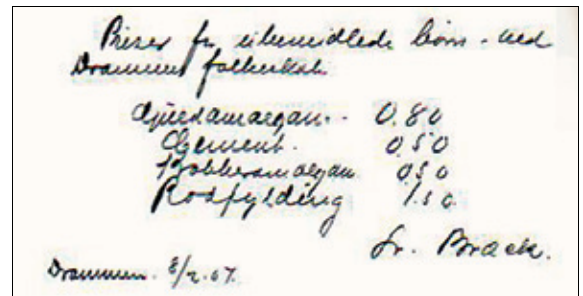 Priser for ubemidlede børn - ved
Drammens folkeskole
Guldamalgam. 0.80
Cement. 0.50
Kobberamalgam 0.50
Rodfylding 1.50
Fr. Brock.
Drammen. 8/2.07.